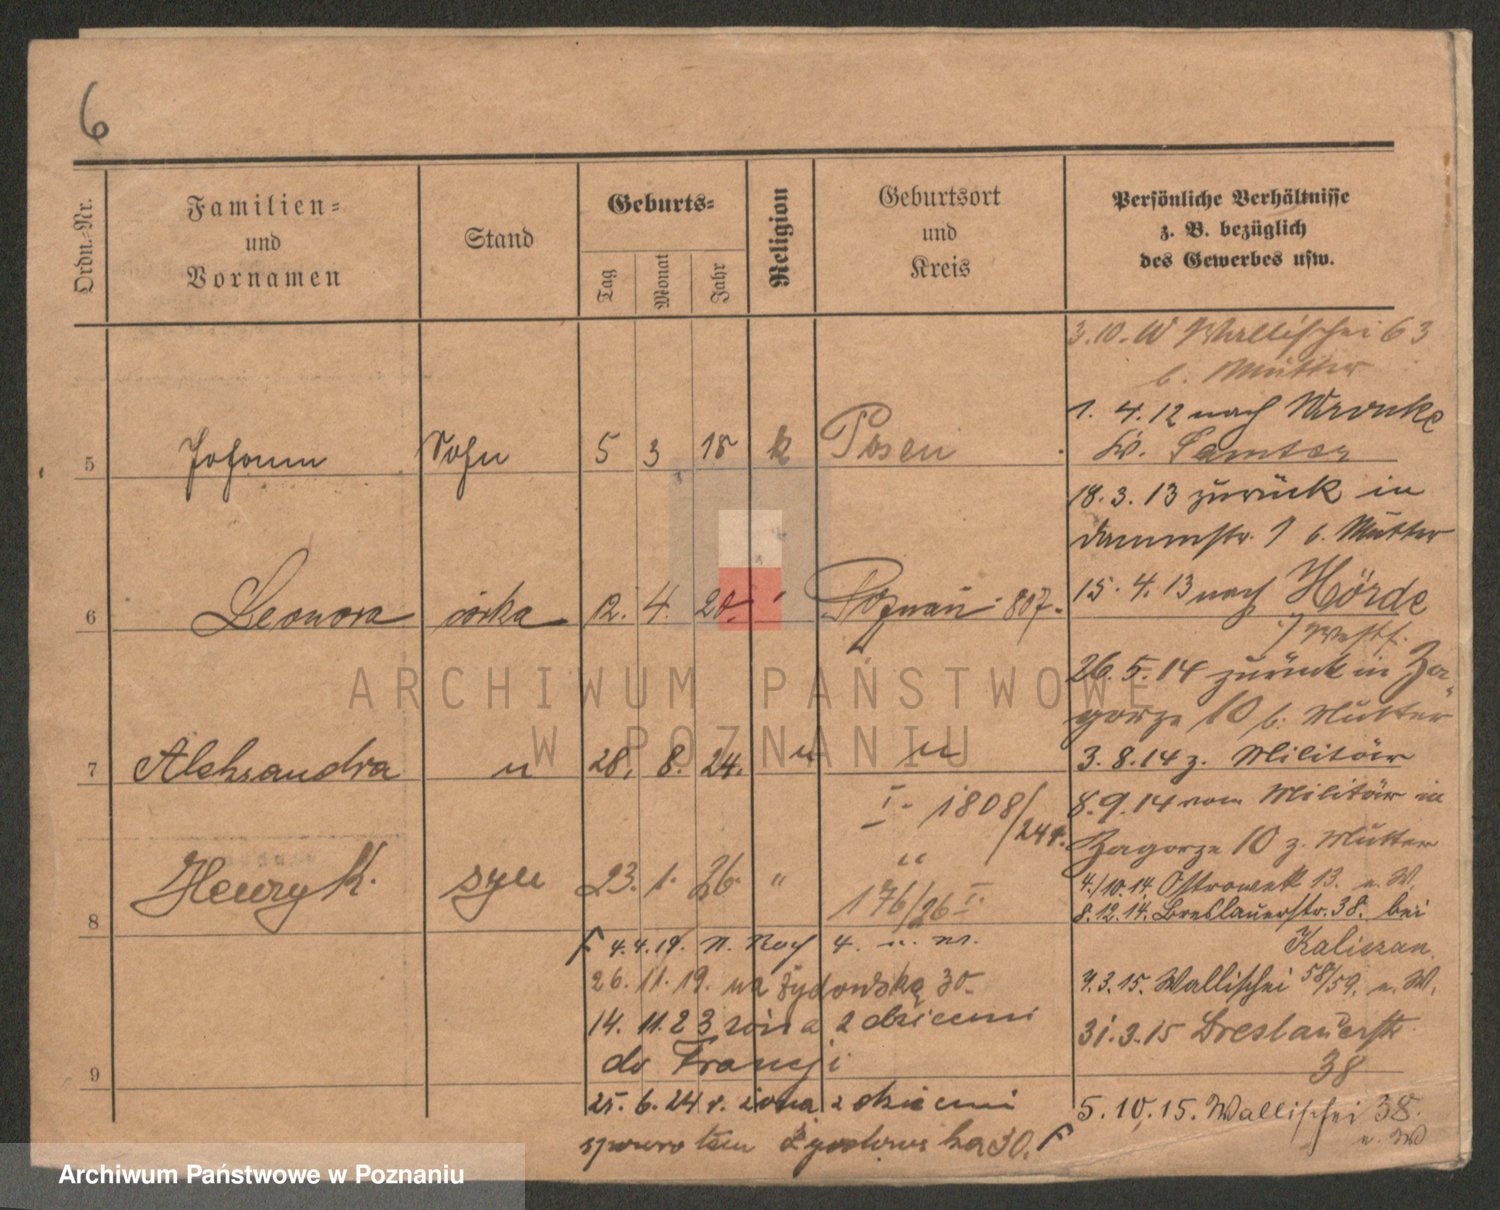 6
Ordn.-Nr.
Familien-
und
Vornamen
Stand
Geburts-
Tag
Monat
Jahr
Religion
Geburtsort
und
Kreis
Persönliche Verhältnisse
z. B. bezüglich
des Gewerbes usw.
5 Johann Sohn 5 3 18 k Posen
6 Leonora córka 12. 4. 20. " Poznań 807.
7 Aleksandra " 28. 8. 24. " "
I. 1808/24
8 Henryk. syn 23. 1. 26. " "
176/26 I.
9
4.4.19. n. Noch 4. u. W.
26.11.19. na Żydowską 30.
14. 11. 23 żona z dziećmi
do Francji
25. 6. 24 r. żona z dziećmi
spowrotem Żydowska 30.
3.10. W Wallischei 63
b. Mutter
1. 4. 12 nach Wronke
Kr. Samter
18. 3. 13 zurück in
Dammstr. 1 b. Mutter
15. 4. 13 nach Hörde
i/Westf.
26. 5. 14 zurück in Za-
gorze 10 b. Mutter
3. 8. 14 z. Militär
8. 9. 14 vom Militär in
Zagorze 10 z. Mutter
4./10.14. Ostrowek 13. u. W.
8. 12. 14. Breslauerstr. 38. bei
Kaliszan
4. 3. 15. Wallischei 58/59. u. W.
31. 3. 15 Breslauerstr
38
5. 10. 15. Wallischei 38.
u. W
ARCHIWUM PAŃSTWOWE
W POZNANIU
Archiwum Państwowe w Poznaniu